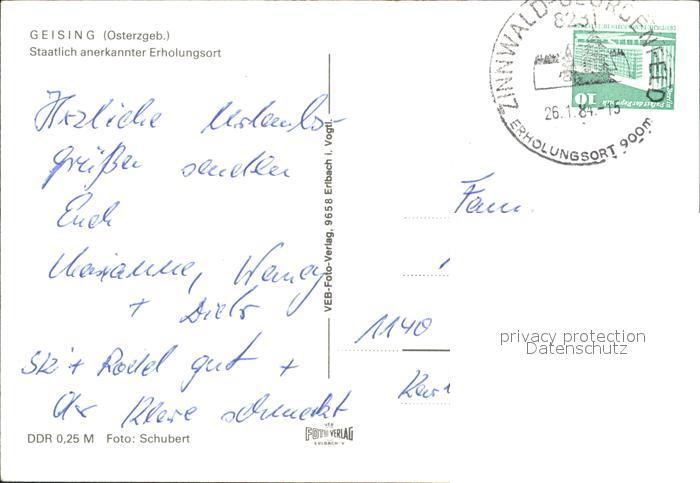 GEISING (Osterzgeb.)
Staatlich anerkannter Erholungsort
Herzliche Urlaubs-
grüße senden
Euch
Marianne, Wency
+ Dieter
Ski + Rodel gut +
der Klare schmeckt
DDR 0,25 M Foto: Schubert
VEB-Foto-Verlag, 9658 Erlbach i. Vogtl.
VEB
FOTO VERLAG
ERLBACH · V
ZINNWALD-GEORGENFELD
8231
26.1.84.-15
ERHOLUNGSORT 900m
10
Fam.
1140
privacy protection
Datenschutz